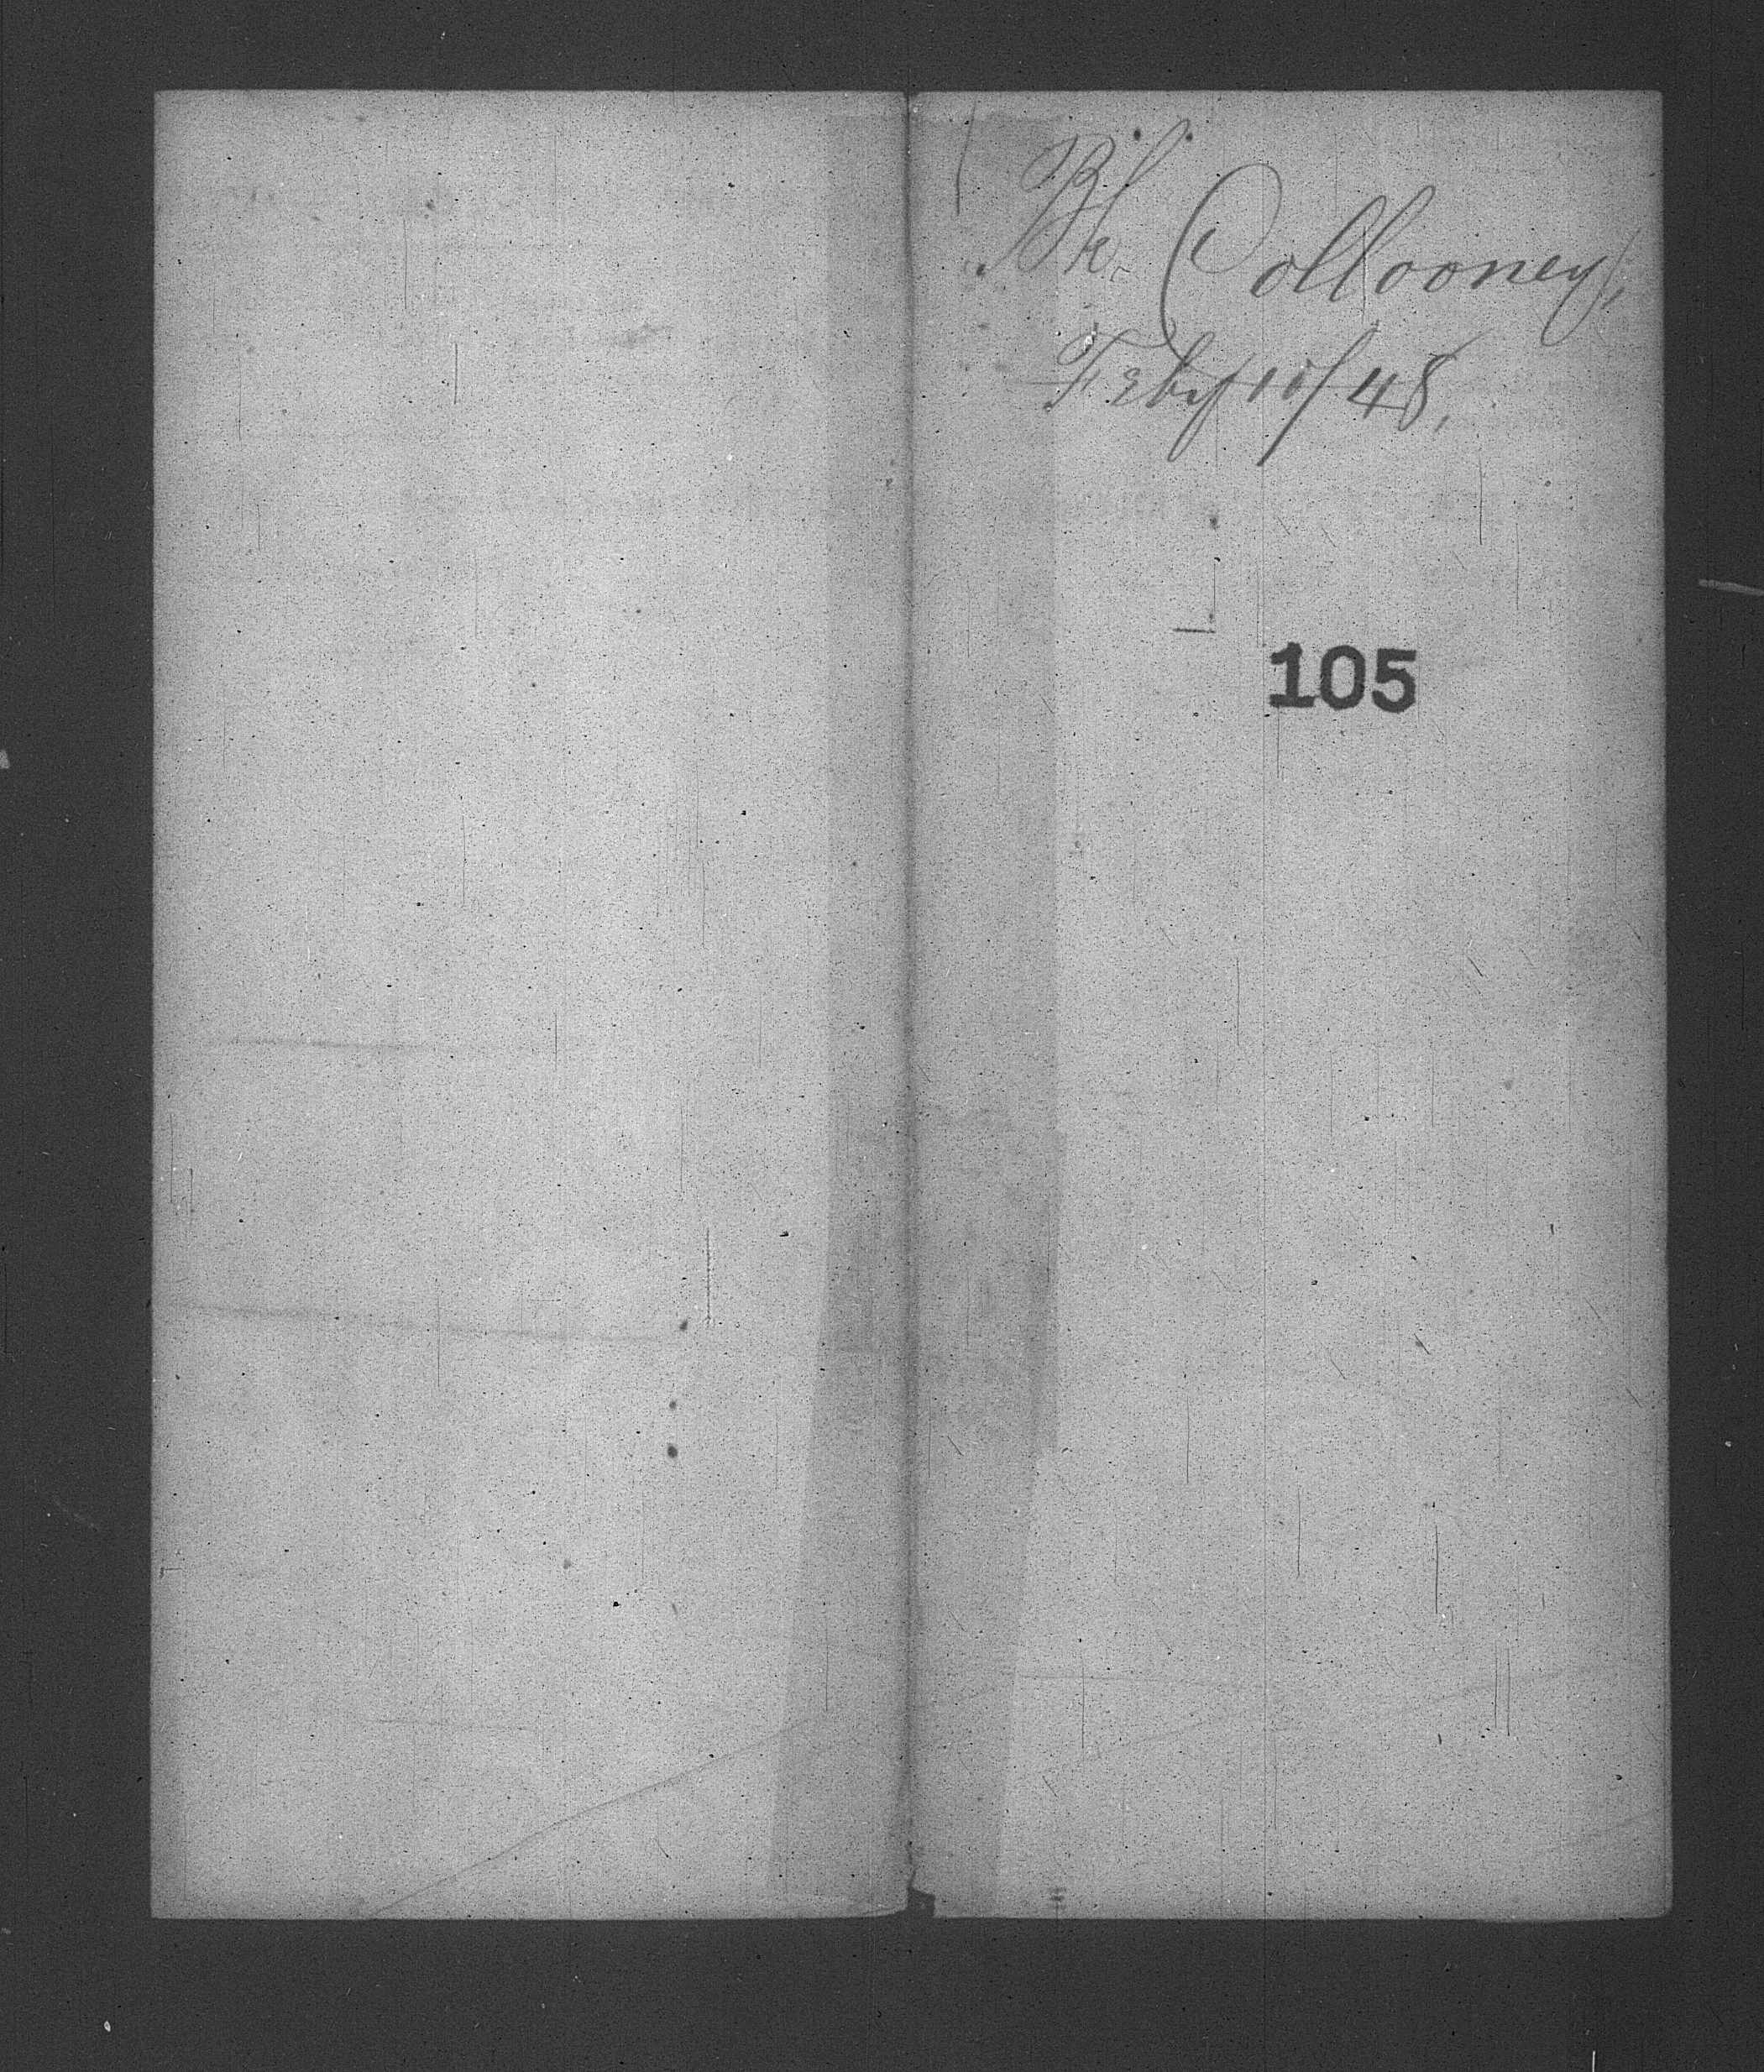 Bk. Collooney,
Feby 10/48,
105